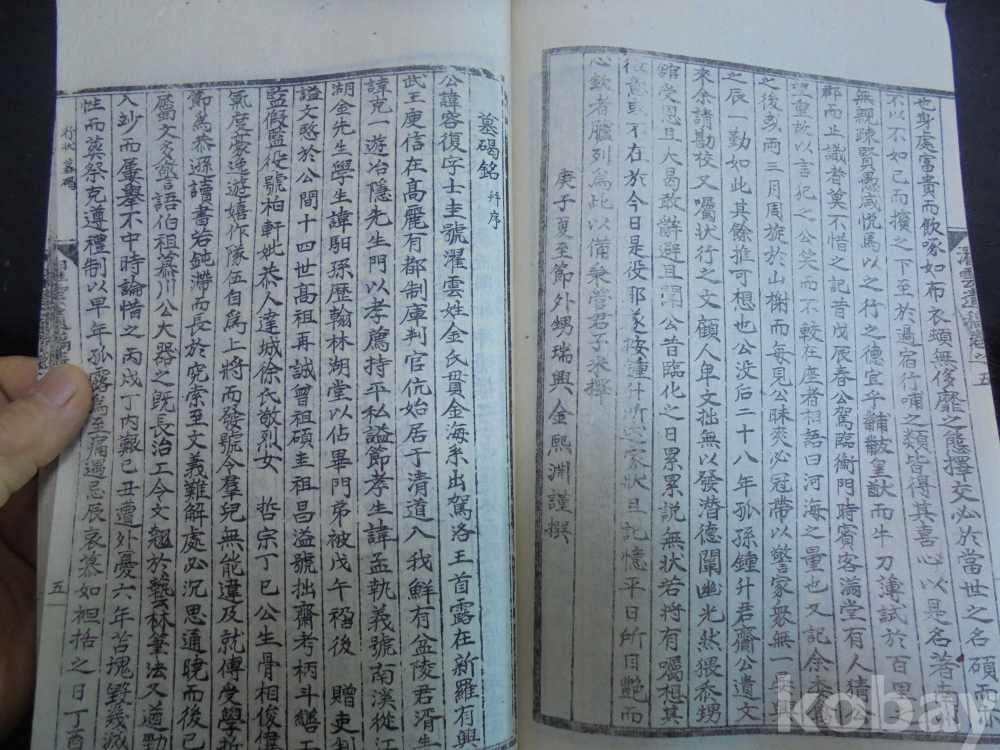 也身處富貴而飮啄如布衣頓無侈靡之態擇交必於當世之名碩而亦
不以不如已而擯之下至於過宿行哺之類皆得其喜心以是名著吉
無親疎賢愚咸悅焉以之行之德宜乎黼黻皇猷而牛刀薄試於百里
郡而止識者莫不惜之記昔戊辰春公駕臨衡門時賓客滿堂有人猜公
望重故以言犯之公笑而不較在座者相語曰河海之量也又記余本
之後或兩三月周旋於山榭而每見公昧爽必冠帶以警家衆無一
之辰一勤如此其餘推可想也公没后二十八年孤孫鍾升君齎公遺文
來余請勘校又囑狀行之文顧人卑文拙無以發潜德闡幽光然猥忝甥
舘受恩且大曷敢辭避且聞公昔臨化之日累累説無狀若將有囑想其
微意或不在於今日是役耶遂按鍾升所
家狀且記憶平日所目艶而
心欽者臚列爲此以備秉管君子來擇
庚子夏至節外甥瑞興金熙淵謹撰
墓碣銘 幷序
公諱容復字士圭號濯雲姓金氏貫金海系出駕洛王首露在新羅有興
武王庾信在高麗有都制庫判官伉始居于清道入我鮮有盆陵君湑生
諱克一遊冶隱先生門以孝薦持平私謚節孝生諱孟執義號南溪從江
湖金先生學生諱馹孫歷翰林湖堂以佔畢門弟被戊午禍後 贈吏
謚文愍於公間十四世高祖再誠曾祖碩圭祖昌溢號拙齋考柄斗繕工
監假監役號柏軒妣恭人達城徐氏敬烈女 哲宗丁巳公生骨相俊偉
氣度豪逸遊嬉作隊伍自爲上將而發號令羣兒無能違及就傅受學折
節爲恭遜讀書若鈍滯而長於究索至文義難解處必沉思通曉而後已
屬文多驚語伯祖慕川公大器之既長治工令文翹於藝林筆法又遒勁
入玅而屢擧不中時論惜之丙戌丁内艱已丑遭外憂六年苫塊毁幾滅
性而葬祭克遵禮制以早年孤露爲至痛遇忌辰哀慕如袒括之日丁酉
行狀 墓碣
五
kobay